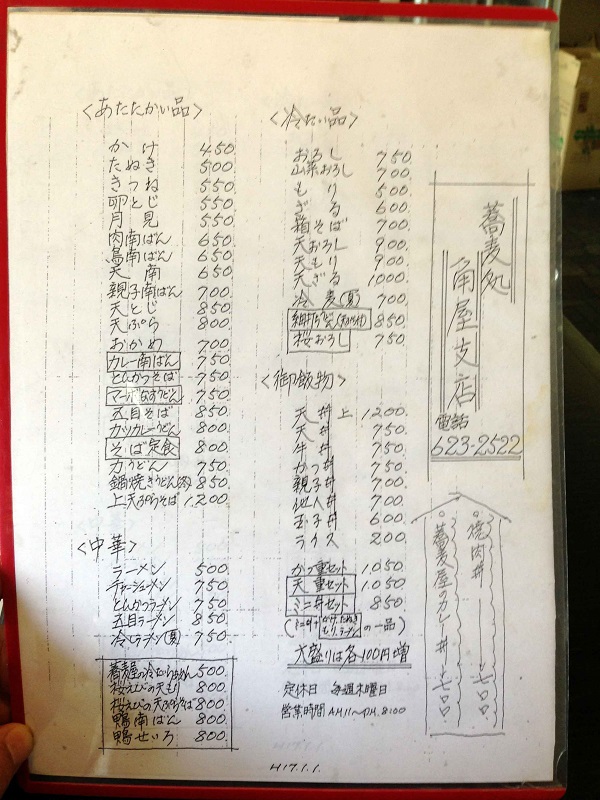 <あたたかい品>
かけ 450
たぬき 500
きつね 550
卵とじ 550
月見 550
肉南ばん 650
鳥南ばん 650
天南 650
親子南ばん 700
天とじ 850
天ぷら 800
おかめ 700
カレー南ばん 750
とんかつそば 750
マーボなすうどん 750
五目そば 850
カツカレーうどん 800
そば定食 800
力うどん 750
鍋焼きうどん 850
上天ぷらそば 1.200
<中華>
ラーメン 500
チャーシューメン 750
とんかつラーメン 750
五目ラーメン 850
冷しラーメン(夏) 750
蕎麦屋の冷たいらーめん 500
桜えびの天もり 800
桜えびの天ぷらそば 800
鴨南ばん 800
鴨せいろ 800
<冷たい品>
おろし 750
山菜おろし 700
もり 500
ざる 600
箱そば 700
天おろし 900
天もり 900
天ざる 1000
冷麦(夏) 700
850
桜おろし 750
<御飯物>
天丼 上 1.200
天丼 750
牛丼 750
かつ丼 750
親子丼 700
他人丼 700
玉子丼 600
ライス 200
かつ重セット 1.050
天重セット 1.050
ミニ丼セット 850
(ミニ丼+かけ.たぬき もり.ラーメンの一品)
大盛りは各100円増
定休日 毎週木曜日
営業時間 A.M.11〜P.M.8:00
蕎麦処
角屋支店
電話
623-2522
焼肉丼
蕎麦屋のカレー丼 七〇〇
H17.1.1.